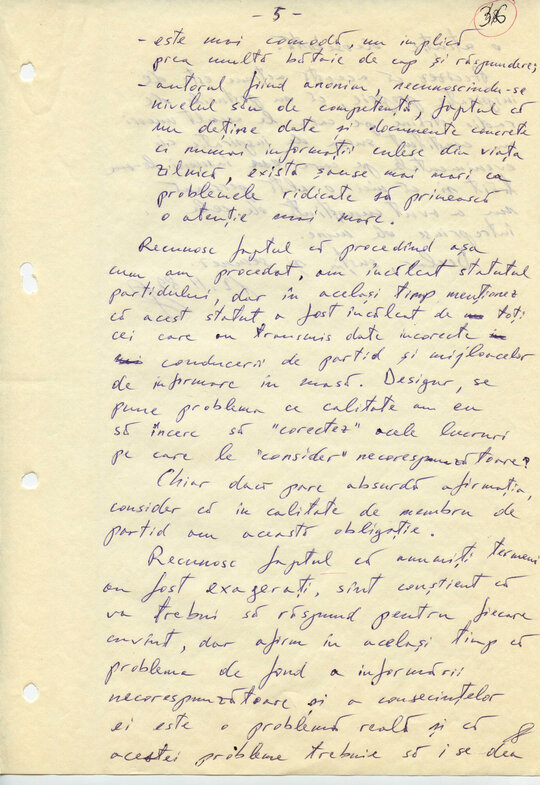 - 5 -
316
- este mai comodă, nu implică
prea multă bătaie de cap și răspundere;
- autorul fiind anonim, necunoscîndu-se
nivelul său de competență, faptul că
nu deține date și documente concrete
ci numai informații culese din viața
zilnică, există șanse mai mari ca
problemele ridicate să primească
o atenție mai mare.
Recunosc faptul că procedînd așa
cum am procedat, am încălcat statutul
partidului, dar în același timp menționez
că acest statut a fost încălcat de toți
cei care au transmis date incorecte
conducerii de partid și mijloacelor
de informare în masă. Desigur, se
pune problema ce calitate am eu
să încerc să "corectez" acele lucruri
pe care le "consider" necorespunzătoare?
Chiar dacă pare absurdă afirmația,
consider că în calitate de membru de
partid am această obligație.
Recunosc faptul că anumiți termeni
au fost exagerați, sînt conștient că
va trebui să răspund pentru fiecare
cuvînt, dar afirm în același timp că
problema de fond a informării
necorespunzătoare și a consecințelor
ei este o problemă reală și că
acestei probleme trebuie să i se dea